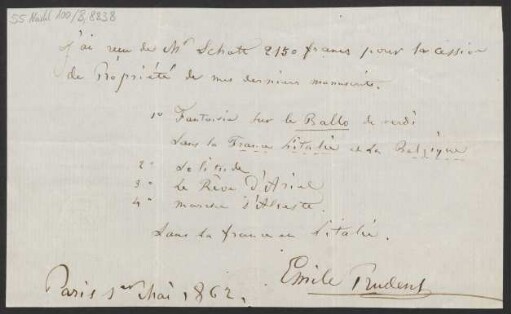 55 Nachl 100/B,8838
J'ai reçu de Mr Schott 2150 francs pour la cession
de Propriété de mes derniers manuscrits.
1º Fantaisie sur le Ballo de verdi
dans la France l'italie et la Belgique
2º
3º Le Rêve d'Ariel
4º marche d'
Dans la france et l'italie.
Paris 1er Mai 1862.
Emile Prudent